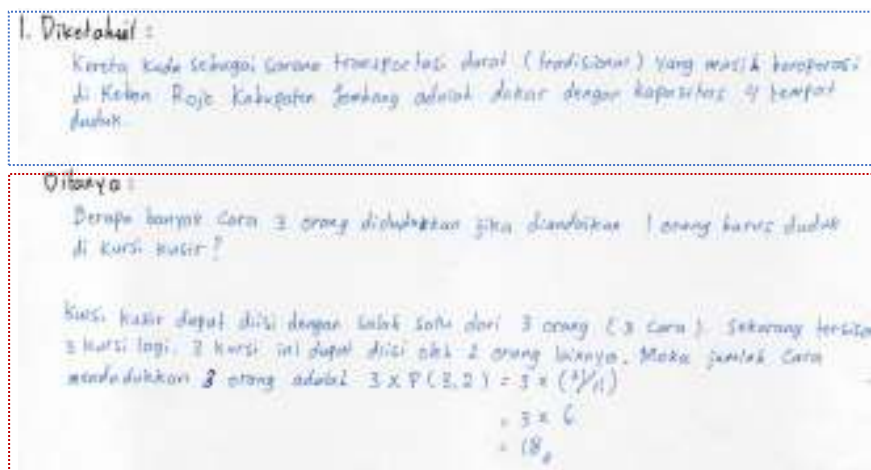 1. Diketahui :
Kereta Kuda sebagai sarana transportasi darat (tradisional) yang masih beroperasi
di Kebon Rojo Kabupaten Jombang adalah dokar dengan kapasitas 4 tempat
duduk
Ditanya :
Berapa banyak cara 3 orang didudukkan jika diandaikan 1 orang harus duduk
di kursi kusir ?
Kursi kusir dapat diisi dengan salah satu dari 3 orang (3 cara). Sekarang tersisa
3 kursi lagi. 3 kursi ini dapat diisi oleh 2 orang lainnya. Maka jumlah cara
mendudukkan 3 orang adalah 3 x P(3,2) = 3 x (3!/1!)
= 3 x 6
= 18